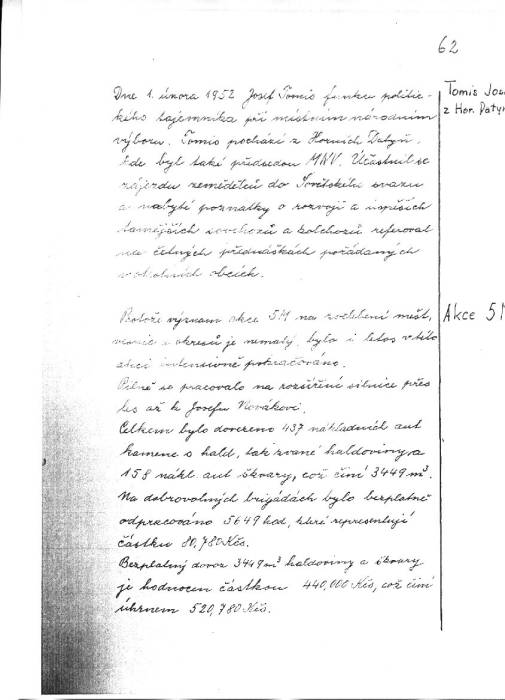 62
Tomis Jos
z Hor. Datyn
Dne 1. února 1952 Josef Tomis funkci politic-
kého tajemníka při místním národním
výboru. Tomis pochází z Horních Datyň.
kde byl také předsedou MNV. Účastnil se
zájezdu zemědělců do Sovětského svazu
a nabyté poznatky o rozvoji a úspěších
tamějších sovchozů a kolchozů referoval
na četných přednáškách pořádaných
v okolních obcích.
Akce 5M
Protože význam akce 5M na zvelebení měst,
vesnic a okresů je nemalý, bylo i letos v této
akci intensivně pokračováno.
Pilně se pracovalo na rozšíření silnice přes
les až k Josefu Novákovi.
Celkem bylo dovezeno 437 nákladních aut
kamene s hald, tak zvané haldoviny, a
158 nákl. aut škvary, což činí 3449 m³.
Na dobrovolných brigádách bylo bezplatně
odpracováno 5649 hod, které representují
částku 80,780 Kčs.
Bezplatný dovoz 3449 m³ haldoviny a škvary
je hodnocen částkou 440,000 Kčs, což činí
úhrnem 520,780 Kčs.